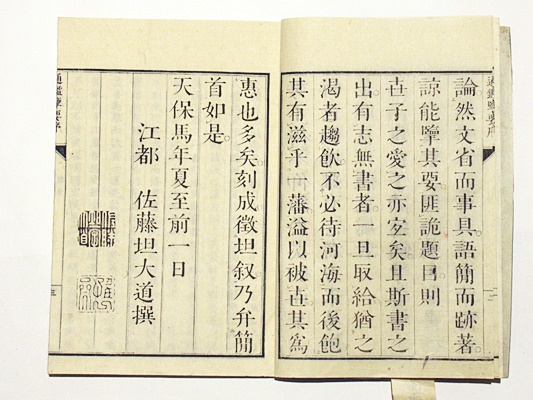 通鑑擥要序
論然文省而事具。語簡而跡著。
諒能擥其要。匪詭題目。則
世子之愛之亦宐矣。且斯書之
出有志無書者。一旦取給猶之
渴者趨飮不必待河海而後飽
其有滋乎一藩溢以被世其爲
惠也多矣。刻成徵坦叙乃弁簡
首如是。
天保馬年夏至前一日
江都 佐藤坦大道撰
通鑑擥要序
三